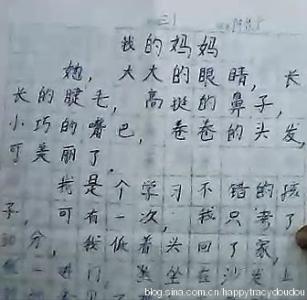 我的妈妈
她，大大的眼睛，长
长的睫毛，高挺的鼻子，
小巧的嘴巴，卷卷的头发，
可美丽了。
我是个学习不错的孩
子，可有一次，我只考了
分，我低着头回了家，
一进门，坐在沙发上
blog.sina.com.cn/happytracydoudou